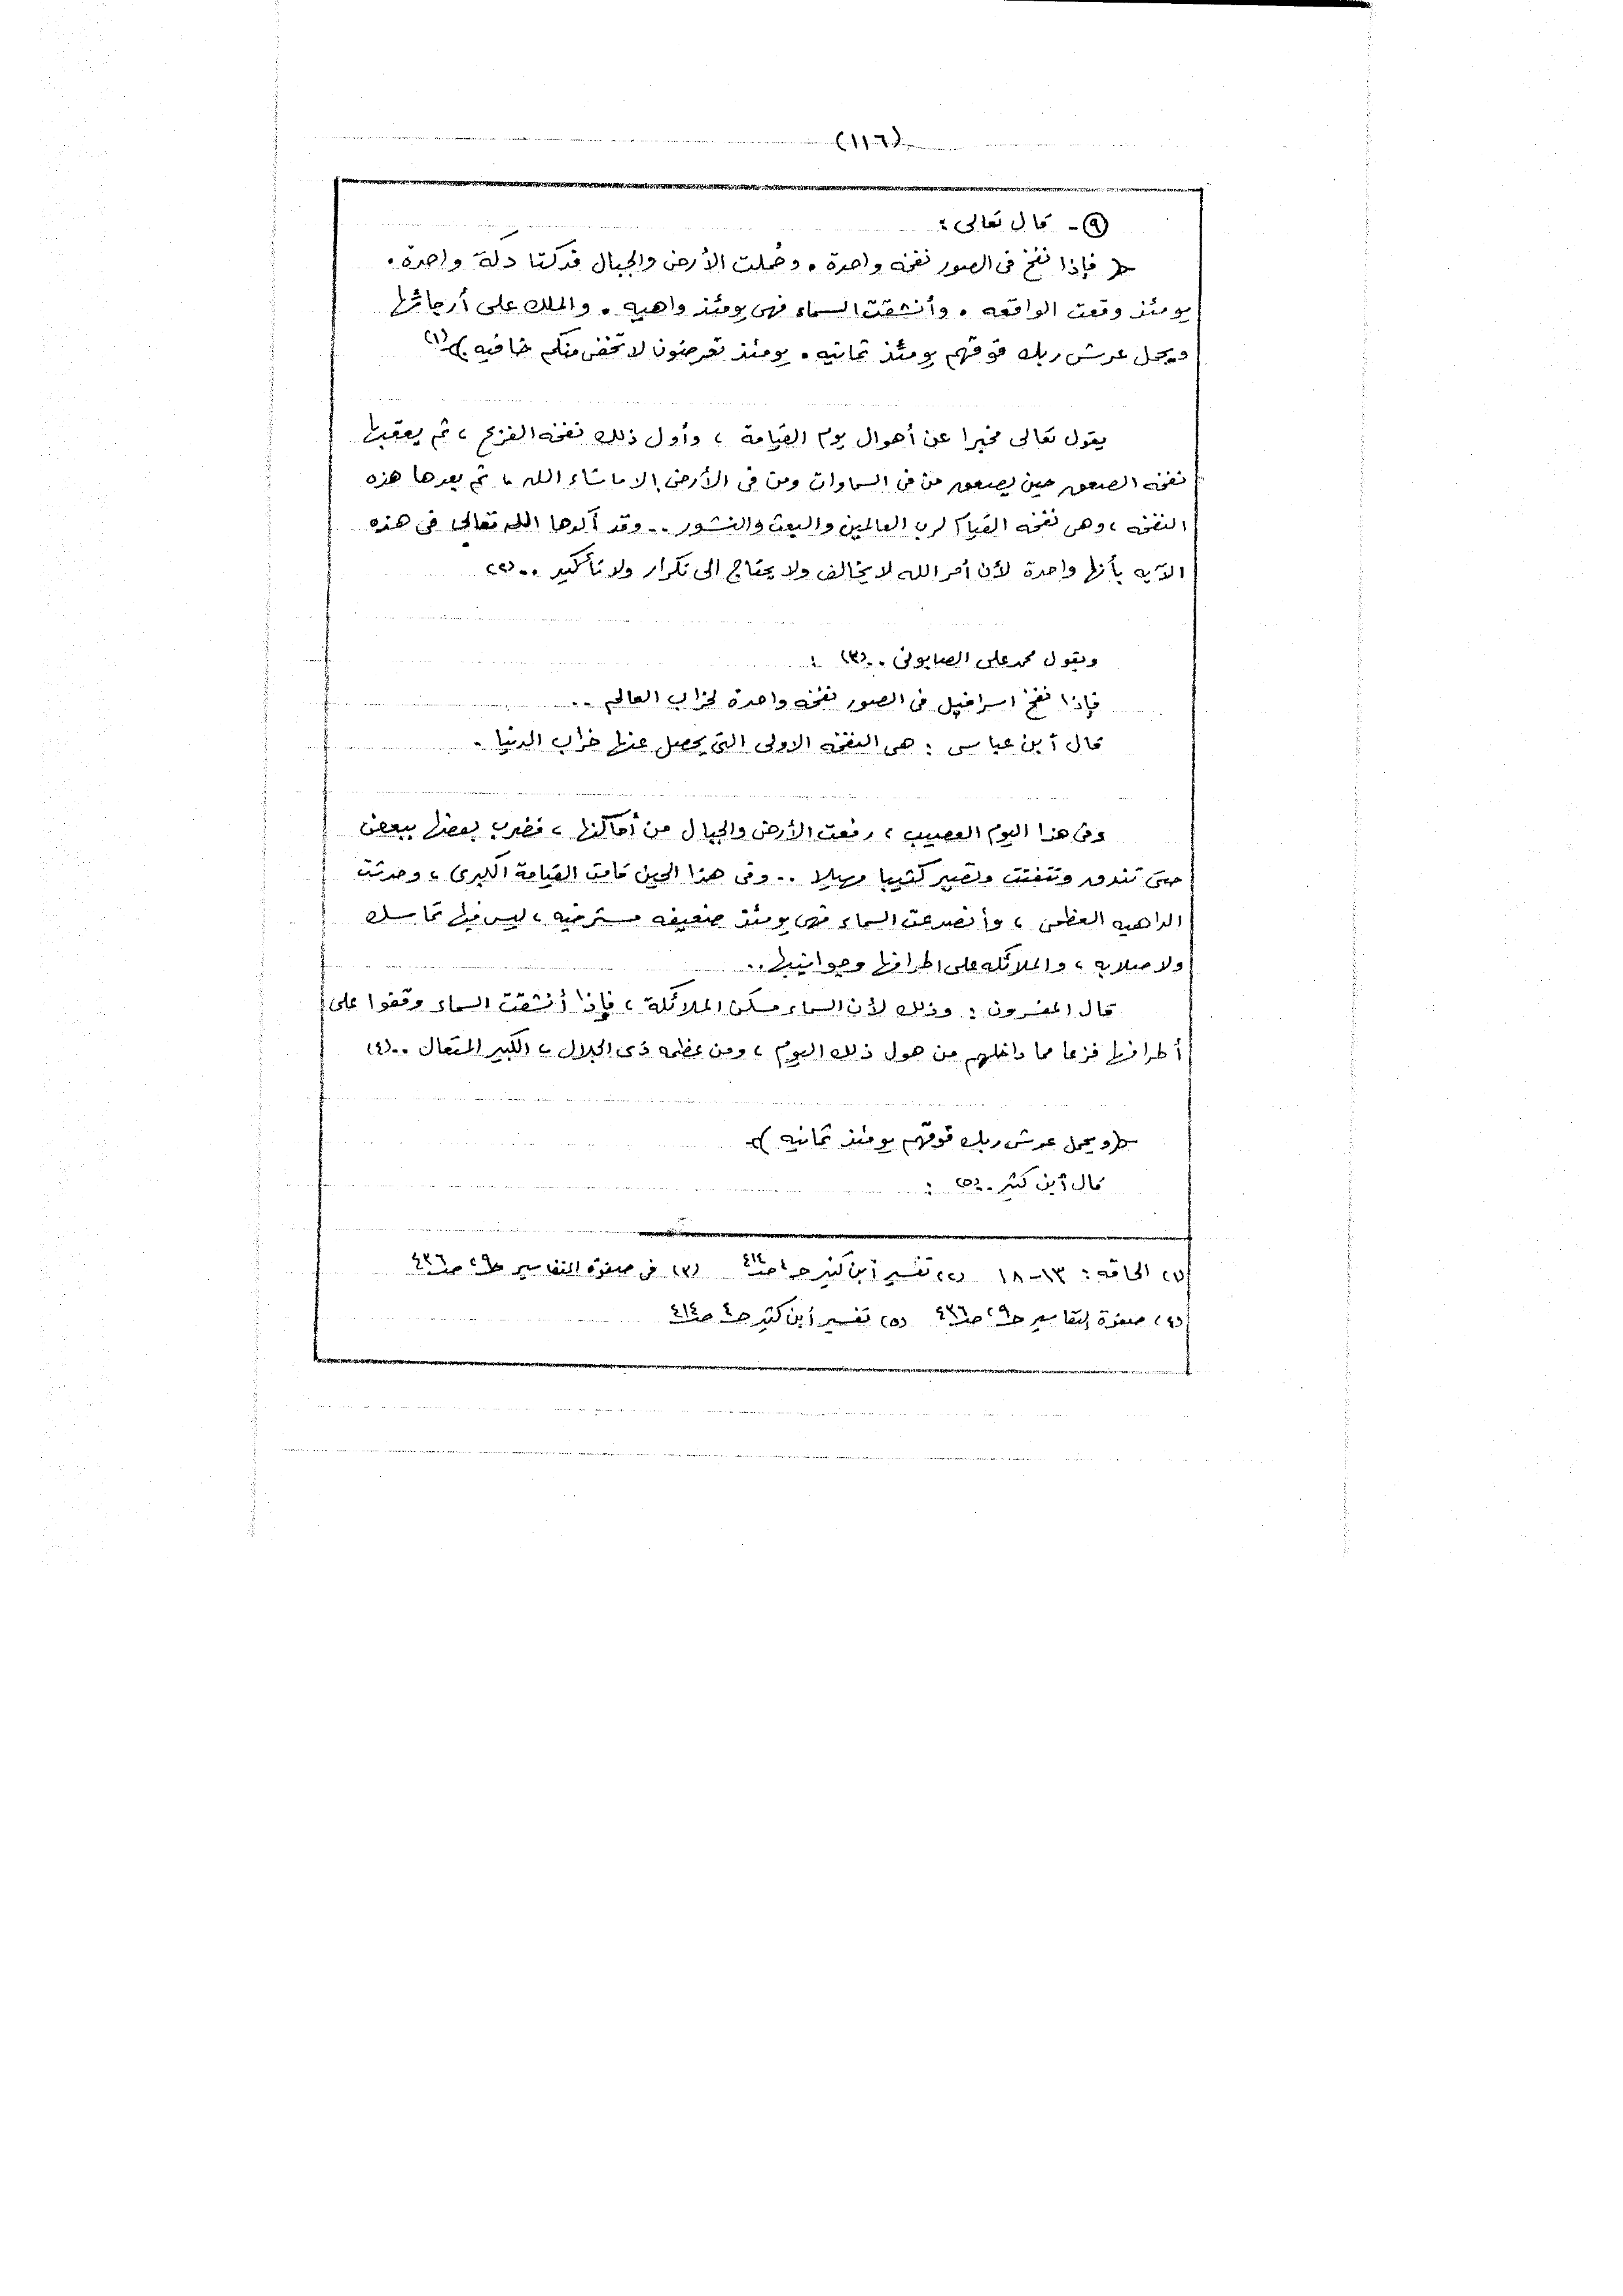 (١١٦)
(٩) - قال تعالى :
﴿ فإذا نفخ فى الصور نفخه واحدة . وحُملت الأرض والجبال فدكتا دكة واحدة .
يومئذ وقعت الواقعه . وأنشقت السماء فهى يومئذ واهيه . والملك على أرجائها
ويحمل عرش ربك فوقهم يومئذ ثمانيه . يومئذ تعرضون لا تخفى منكم خافيه ﴾(١)
يقول تعالى مخبرا عن أهوال يوم القيامة ، وأول ذلك نفخه الفزع ، ثم يعقبها
نفخه الصعق حين يصعق من فى السماوات ومن فى الأرض إلا ما شاء الله ، ثم بعدها هذه
النفخه ، وهى نفخه القيام لرب العالمين والبعث والنشور .. وقد أكدها الله تعالى فى هذه
الآيه بأنها واحدة لأن أمر الله لا يخالف ولا يحتاج الى تكرار ولا تأكيد .. (٢)
ويقول محمد على الصابونى .. (٣) :
فإذا نفخ اسرافيل فى الصور نفخه واحدة لخراب العالم ..
قال أبن عباس : هى النفخه الاولى التى يحصل عنها خراب الدنيا .
وفى هذا اليوم العصيب ، رفعت الأرض والجبال من أماكنها ، فضرب بعضها ببعض
حتى تندق وتتفتت وتصير كثيبا مهيلا .. وفى هذا الحين قامت القيامة الكبرى ، وحدثت
الداهيه العظمى ، وأنصدعت السماء فهى يومئذ ضعيفه مسترخيه ، ليس فيها تماسك
ولا صلابه ، والملائكه على اطرافها وجوانبها ..
قال المفسرون : وذلك لأن السماء مسكن الملائكة ، فإذا أنشقت السماء وقفوا على
أطرافها فزعا مما داخلهم من هول ذلك اليوم ، ومن عظمه ذى الجلال ، الكبير المتعال .. (٤)
﴿ ويحمل عرش ربك فوقهم يومئذ ثمانيه ﴾
قال أبن كثير .. (٥) :
(١) الحاقه : ١٣-١٨ (٢) تفسير أبن كثير حـ٤ صـ٤١٤ (٣) فى صفوة التفاسير حـ٢٩ صـ٤٣٦
(٤) صفوة التفاسير حـ٢٩ صـ٤٣٦ (٥) تفسير أبن كثير حـ٤ صـ٤١٤